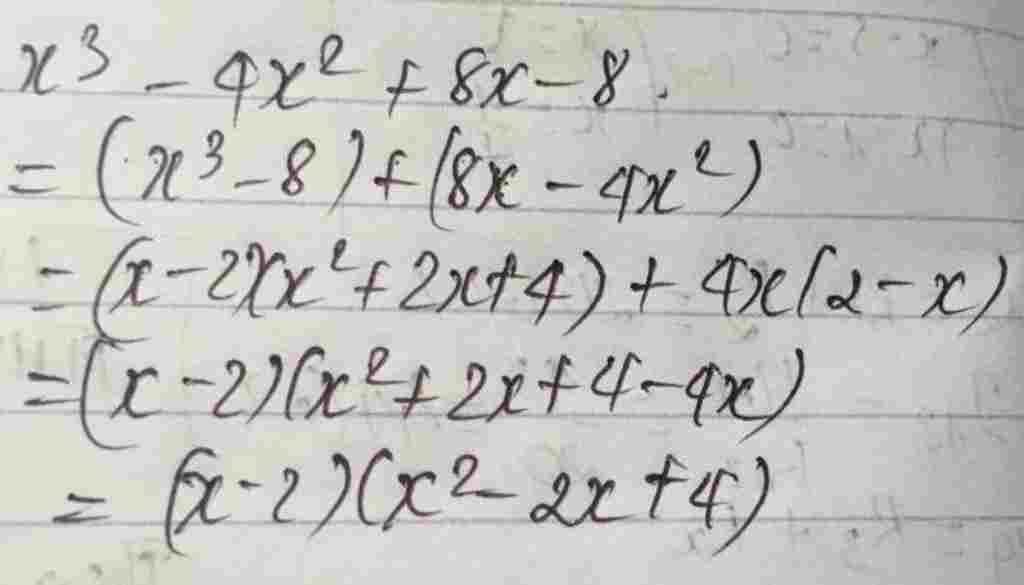 x³ - 4x² + 8x - 8.
= (x³ - 8) + (8x - 4x²)
= (x - 2)(x² + 2x + 4) + 4x(2 - x)
= (x - 2)(x² + 2x + 4 - 4x)
= (x - 2)(x² - 2x + 4)